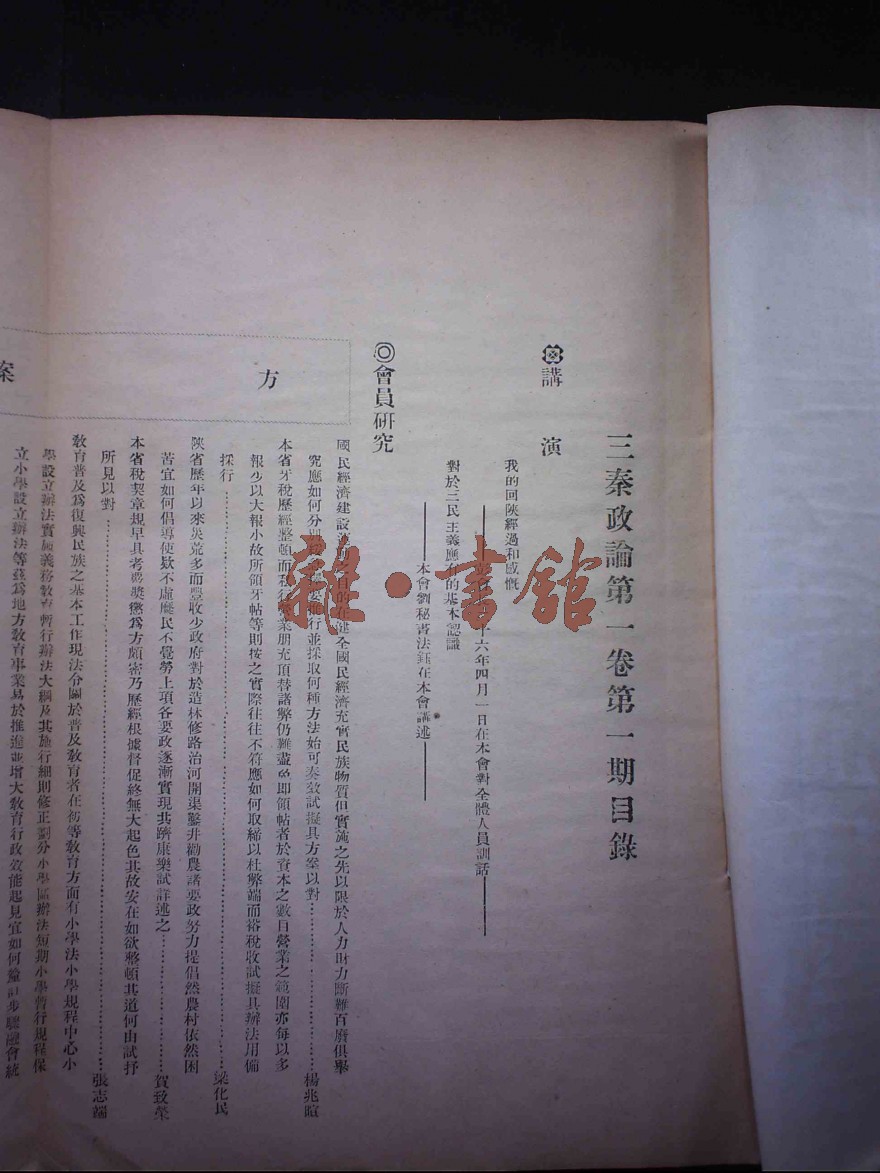 三秦政論第一卷第一期目錄
講演
我的回陝經過和感慨
十六年四月一日在本會對全體人員訓話
對於三民主義應有的基本認識
本會劉秘書法鈺在本會講述
◎會員研究
方
案
國民經濟建設運動之目的在健全國民經濟充實民族物質但實施之先以限於人力財力斷難百廢俱舉
究應如何分別推行並採取何種方法始可奏效試擬具方案以對……楊兆暄
本省牙稅歷經整頓而私行營業朋充頂替諸弊仍難盡免即領帖者於資本之數目營業之範圍亦每以多
報少以大報小故所領牙帖等則按之實際往往不符應如何取締以杜弊端而裕稅收試擬具辦法用備
採行……梁化民
陝省歷年以來災荒多而豐收少政府對於造林修路治河開渠鑿井勸農諸要政努力提倡然農村依然困
苦宜如何倡導使欵不虛糜民不覺勞上項各要政逐漸實現共躋康樂試詳述之……賀致榮
本省稅契章規早具考覈獎懲爲方頗密乃歷經根據督促終無大起色其故安在如欲整頓其道何由試抒
所見以對……張志端
教育普及爲復興民族之基本工作現法令關於普及教育者在初等教育方面有小學法小學規程中心小
學設立辦法實施義務教育暫行辦法大綱及其施行細則修正劃分小學區辦法短期小學暫行規程保
立小學設立辦法等茲爲地方教育事業易於推進並增大教育行政效能起見宜如何釐訂步驟融會統
雜·書館